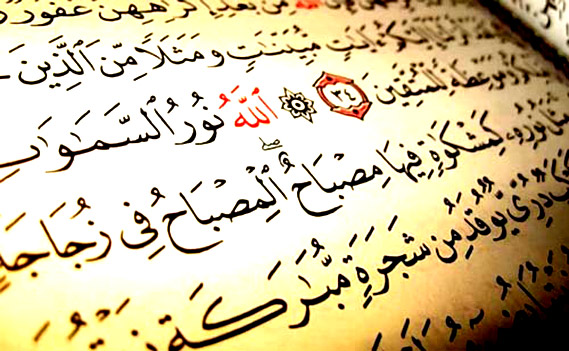 بَعْدِ إِكْرَٰهِهِنَّ غَفُورٌ
ءَايَٰتٍ مُّبَيِّنَٰتٍ وَمَثَلًا مِّنَ ٱلَّذِينَ
وَمَوْعِظَةً لِّلْمُتَّقِينَ ٣٤ ٱللَّهُ نُورُ ٱلسَّمَٰوَٰتِ
مَثَلُ نُورِهِۦ كَمِشْكَوٰةٍ فِيهَا مِصْبَاحٌ ۖ ٱلْمِصْبَاحُ فِى زُجَاجَةٍ
دُرِّىٌّ يُوقَدُ مِن شَجَرَةٍ مُّبَٰرَكَةٍ